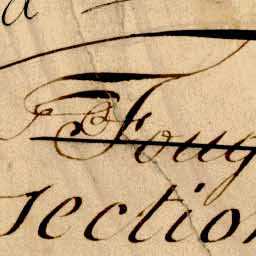 Foug
section